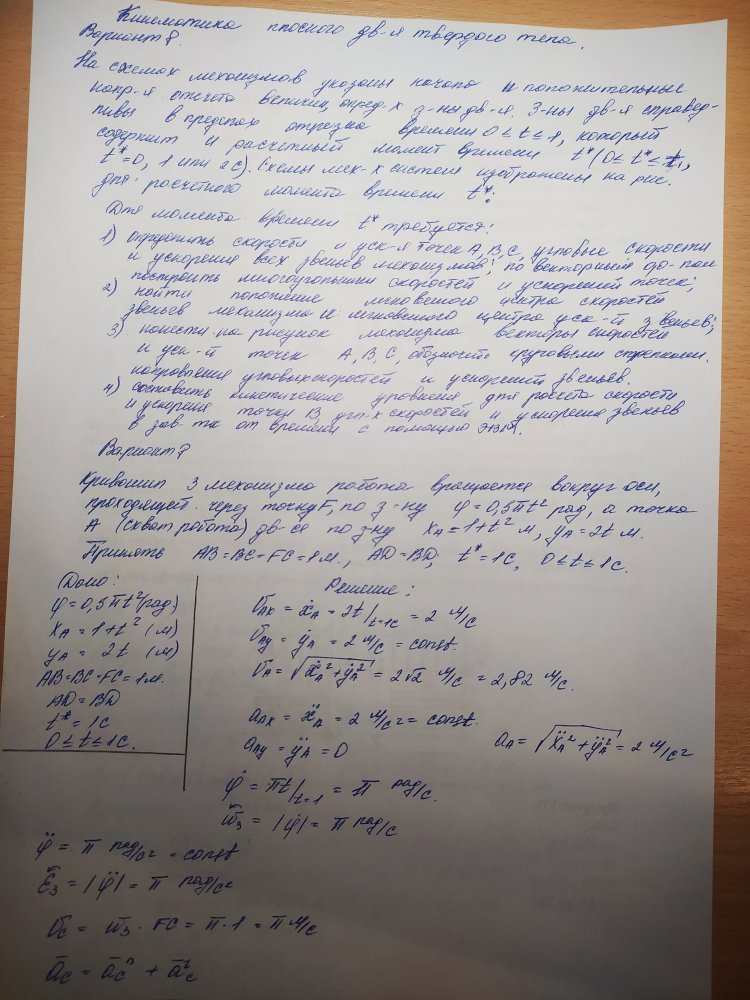 Кинематика плоского дв-я твердого тела.
Вариант 8.
На схемах механизмов указаны начала и положительные
напр-я отсчета величин, опред-х з-ны дв-я. З-ны дв-я справед-
ливы в пределах отрезка времени 0 ≤ t ≤ 1, который
содержит и расчетный момент времени t* (0 ≤ t* ≤
t* = 0, 1 или 2с). Схемы мех-х систем изображены на рис.
для расчетного момента времени t*.
Для момента времени t* требуется:
1) определить скорости и уск-я точек А, В, С, угловые скорости
и ускорения всех звеньев механизмов; по векторным
построить многоугольники скоростей и ускорений точек;
2) найти положение мгновенного центра скоростей
звеньев механизма и мгновенного центра уск-й 3 звеньев;
3) нанести на рисунок механизма векторы скоростей
и уск-й точек А, В, С, обозначить круговыми стрелками
направления угловых скоростей и ускорений звеньев.
4) составить кинетические уровнения для расчета скорости
и ускорения точки В угл-х скоростей и ускорения звеньев
в зав-ти от времени с помощью ЭВМ.
Вариант 8
Кривошип 3 механизма робота вращается вокруг оси,
проходящей через точку F, по з-ну φ = 0,5πt² рад, а точка
А (схват робота) дв-ся по з-ну xA = 1+t² м, yA = 2t м.
Принять AB = BC = FC = 1м., AD = BD; t* = 1с, 0 ≤ t ≤ 1с.
Дано:
φ = 0,5πt² (рад)
xA = 1+t² (м)
yA = 2t (м)
AB = BC = FC = 1м.
AD = BD
t* = 1с
0 ≤ t ≤ 1с.
Решение:
υAx = ẋA = 2t/t=1с = 2 м/с
υAy = ẏA = 2 м/с = const.
υA = √ẋA² + ẏA² = 2√2 м/с = 2,82 м/с.
aAx = ẍA = 2 м/с² = const.
aAy = ÿA = 0
aA = √ẍA² + ÿA² = 2 м/с²
φ̇ = πt/t=1 = π рад/с.
ω̄3 = |φ̇| = π рад/с
φ̈ = π рад/с² = const
ε̄3 = |φ̈| = π рад/с²
ῡC = ω̄3 · FC = π · 1 = π м/с
āC = āCⁿ + āCᵗ